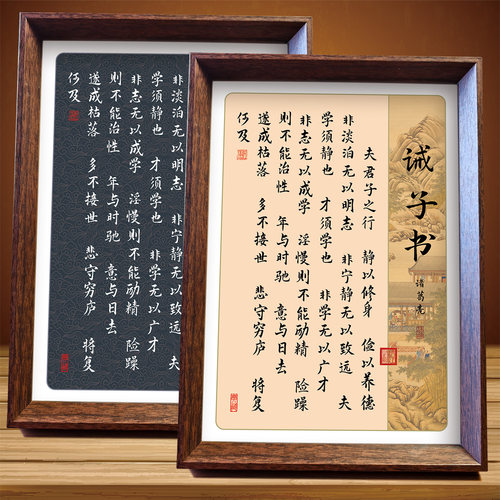 诫子书
诸葛亮
夫君子之行 静以修身 俭以养德
非淡泊无以明志 非宁静无以致远 夫
学须静也 才须学也 非学无以广才
非志无以成学 淫慢则不能动精 险躁
则不能治性 年与时驰 意与日去
遂成枯落 多不接世 悲守穷庐 将复
何及
非淡泊无以明志 非宁静无以致远 夫
学须静也 才须学也 非学无以广才
非志无以成学 淫慢则不能动精 险躁
则不能治性 年与时驰 意与日去
遂成枯落 多不接世 悲守穷庐 将复
何及